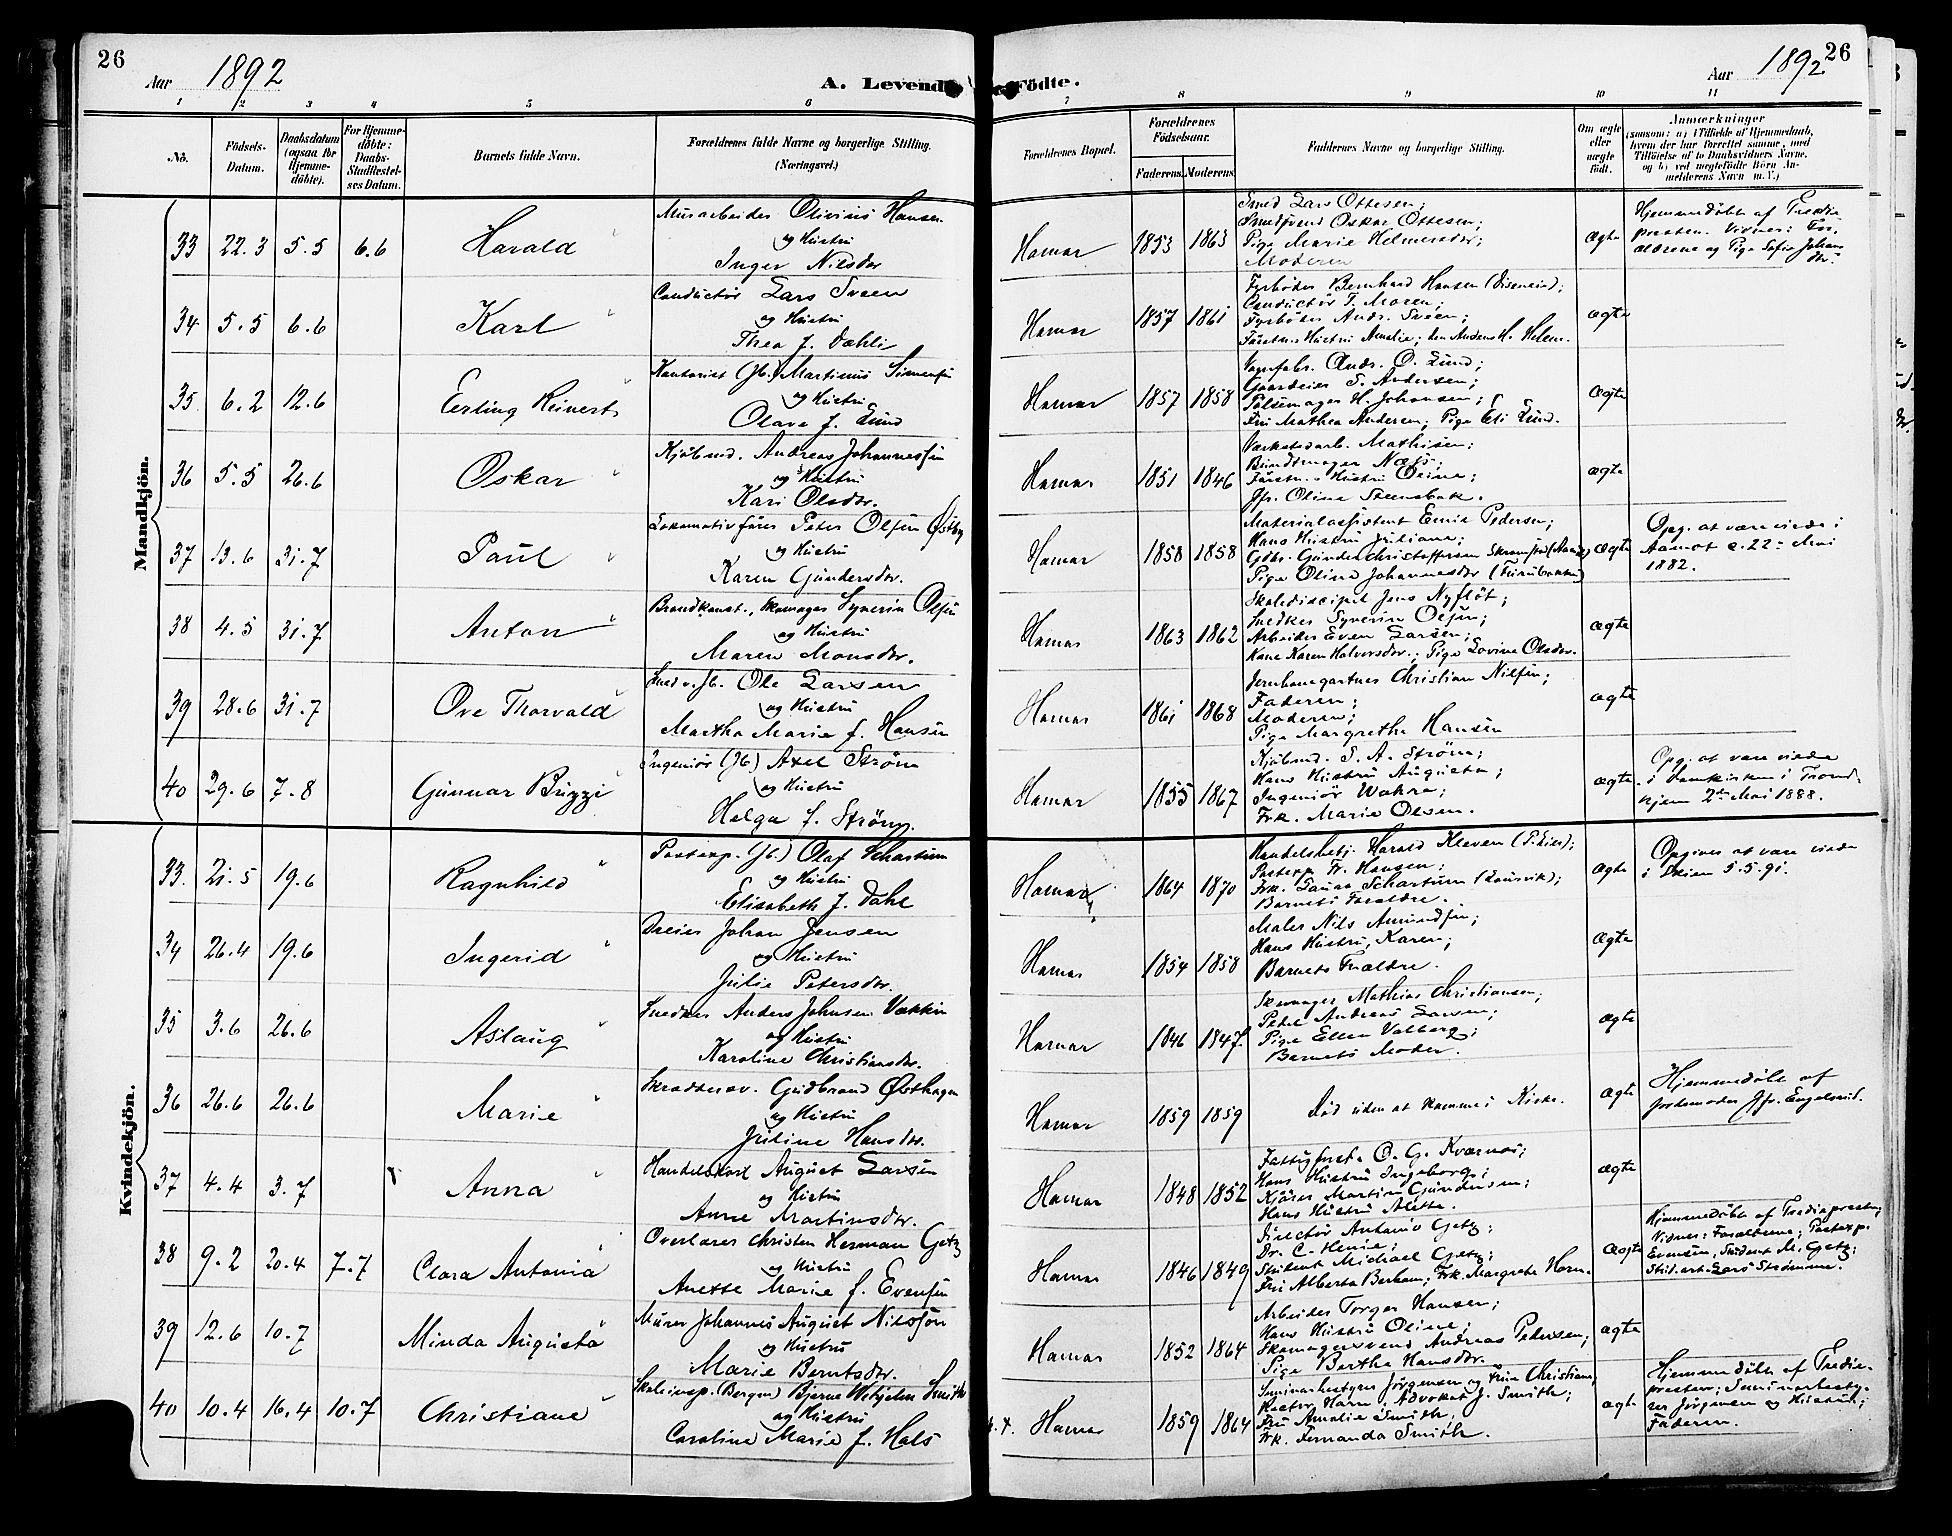 26
Aar 1892
A. Levende Födte.
Aar 1892
26
1 2 3 4 5 6 7 8 9 10 11
No.
Födsels-Datum.
Daabsdatum (ogsaa for Hjemme-döbte).
For Hjemme-döbte: Daabs-Stadfæstel-ses Datum.
Barnets fulde Navn.
Forældrenes fulde Navne og borgerlige Stilling.
(Næringsvei.)
Forældrenes Bopæl.
Forældrenes Födselsaar.
Faderens. Moderens.
Faddernes Navne og borgerlige Stilling.
Om ægte eller uægte födt.
Anmærkninger
(saasom: a) i Tilfælde af Hjemmedaab, hvem der har forrettet samme, med Tilföielse af to Daabsvidners Navne, og b) ved uegtefödte Börn An-melderens Navn m. V.)
Mandkjön.
33 22.3 5.5 6.6 Harald
Murarbeider Olivius Hansen
og Hustru
Inger Nilsdr
Hamar 1853 1863
Smed Lars Ottesen;
Smedsvend Oskar Ottesen;
Pige Marie Helmersdr;
Moderen
ægte
Hjemmedöbt af Tredie
presten. Vidner: For
ældrene og Pige Sofie Johans
dr.
34 5.5 6.6 Karl
Conductör Lars Sveen
og Hustru
Thea f. Dahli
Hamar 1857 1861
Fyrböder Bernhard Hansen (Disenvei);
Conductör T. Moren;
Fyrböter Ands. Sveen;
Förstns Hustru Amalie; den Andens H. Helene.
ægte
35. 6.2 12.6 Erling Reinert
Kontorist (Jb.) Martinus Simensen
og Hustru
Olava f. Lund
Hamar 1857 1858
Vognfabr. Ands. O. Lund;
Gaardeier S. Andersen;
Pölsemager H. Johansen;
Fru Mathea Andersen; Pige Eli Lund.
ægte
36 5.5 26.6 Oskar
Kjöbmd. Andreas Johannessen
og Hustru
Kari Olsdr.
Hamar 1851 1846
Værkstedarb. Mathisen;
Bundtmager Næss;
Förstn.s Hustru Oline;
Jfr. Oline Steensbak.
ægte
37 13.6 31.7 Paul
Lokomotivförer Peter Olsen Östby
og Hustru
Karen Gundersdr.
Hamar 1858 1858
Materialassistent Emil Pedersen;
Hans Hustru Juliane;
Gdbr. Gunder Christoffersen
Pige Oline Johannesdr (Furubakken)
ægte
Opg. at være viede i
Aamot c. 22de Mai
1882.
38 4.5 31.7 Anton
Brandkonst., Skomager Syverin Olsen
og Hustru
Maren Monsdr.
Hamar 1863 1862
Skolediscipel Jens Nyflöt;
Snedker Syverin Olsen;
Arbeider Even Larsen;
Kone Karen Halvorsdr.; Pige Lovine Olsdr.
ægte
39 28.6 31.7 Ove Thorvald
Smed v. Jb. Ole Larsen
og Hustru
Martha Marie f. Hansen
Hamar 1861 1868
Jernbanegartner Christian Nilsen;
Faderen;
Moderen;
Pige Margrethe Hansen
ægte
40 29.6 7.8 Gunnar Brizzi
Ingeniör (Jb) Axel Ström
og Hustru
Helga f. Ström.
Hamar 1855 1867
Kjöbmd. S. A. Ström;
Hans Hustru Augusta;
Ingeniör Wakra;
Frk. Marie Olsen.
ægte
Opg. at være viede
i Domkirken i Trond-
hjem 2den Mai 1888.
Kvindekjön.
33. 21.5 19.6 Ragnhild
Postexp. (Jb.) Olaf Schartum
og Hustru
Elisabeth f. Dahl
Hamar 1864 1870
Handelsbetj. Harald Kleven (P. Lier);
Postexp Fr. Hansen;
Frk. Laura Schartum (Laurvik);
Barnets Forældre.
ægte
Opgives at være viede
i Skien 5.5.91.
34 26.4 19.6 Ingerid
Dreier Johan Jensen
og Hustru
Julie Petersdr.
Hamar 1854 1858
Maler Nils Amundsen;
Hans Hustru, Karen;
Barnets Forældre.
ægte
35 3.6 26.6 Aslaug
Snedker Anders Johnsen
og Hustru
Karoline Christiansdr.
Hamar 1846 1847
Skomager Mathias Christiansen;
Pedel Andreas Larsen;
Pige Ellen Valberg;
Barnets Moder.
ægte
36 26.6 26.6 Marie
Skrædersv. Gudbrand Östhagen
og Hustru
Juline Hansdr.
Hamar 1859 1859
Död uden at komme i Kirke.
ægte
Hjemmedöbt af
Jordemoder Jfr. Engelsrud.
37 4.4 3.7 Anna
Handelskarl August Larsen
og Hustru
Anne Martinsdr.
Hamar 1848 1852
Fattigfgst. O. G. Kværnæs;
Hans Hustru Ingeborg;
Kjörer Martin Gundersen;
Hans Hustru Alette.
ægte
38 9.2 20.4 7.7 Clara Antonia
Overlærer Christen Herman Getz
og Hustru
Anette Marie f. Evensen
Hamar 1846 1849
Director Antonio Getz;
Dr. C. Henie;
Student Michael Getz;
Fru Alberta Berham; Frk. Margrete Horn.
ægte
Hjemmedöbt af Tredieprest;
Vidner: Forældrene; Postexp.
Evensen, Student M. Getz;
Stud. art. Lars Strömme.
39 12.6 10.7 Minda Augusta
Murer Johannes August Nilsson
og Hustru
Marie Berntsdr.
Hamar 1852 1864
Arbeider Torger Hansen;
Hans Hustru Oline;
Skomagersvend Andreas Pedersen;
Pige Bertha Hansdr.
ægte
40 10.4 16.4 10.7 Christiane
Skoleinsp. (Bergen) Bjarne Wilhjelm Smith
og Hustru
Caroline Marie f. Hals
Hamar 1859 1864
Seminarbestyrer Jörgensen og Frue Christiane;
Rector Horn, Advokat J. Smith;
Fru Amalie Smith;
Frk. Fernanda Smith.
ægte
Hjemmedöbt af Tredie-
presten; Seminarbesty-
rer Jörgensen og Hustru;
Faderen.